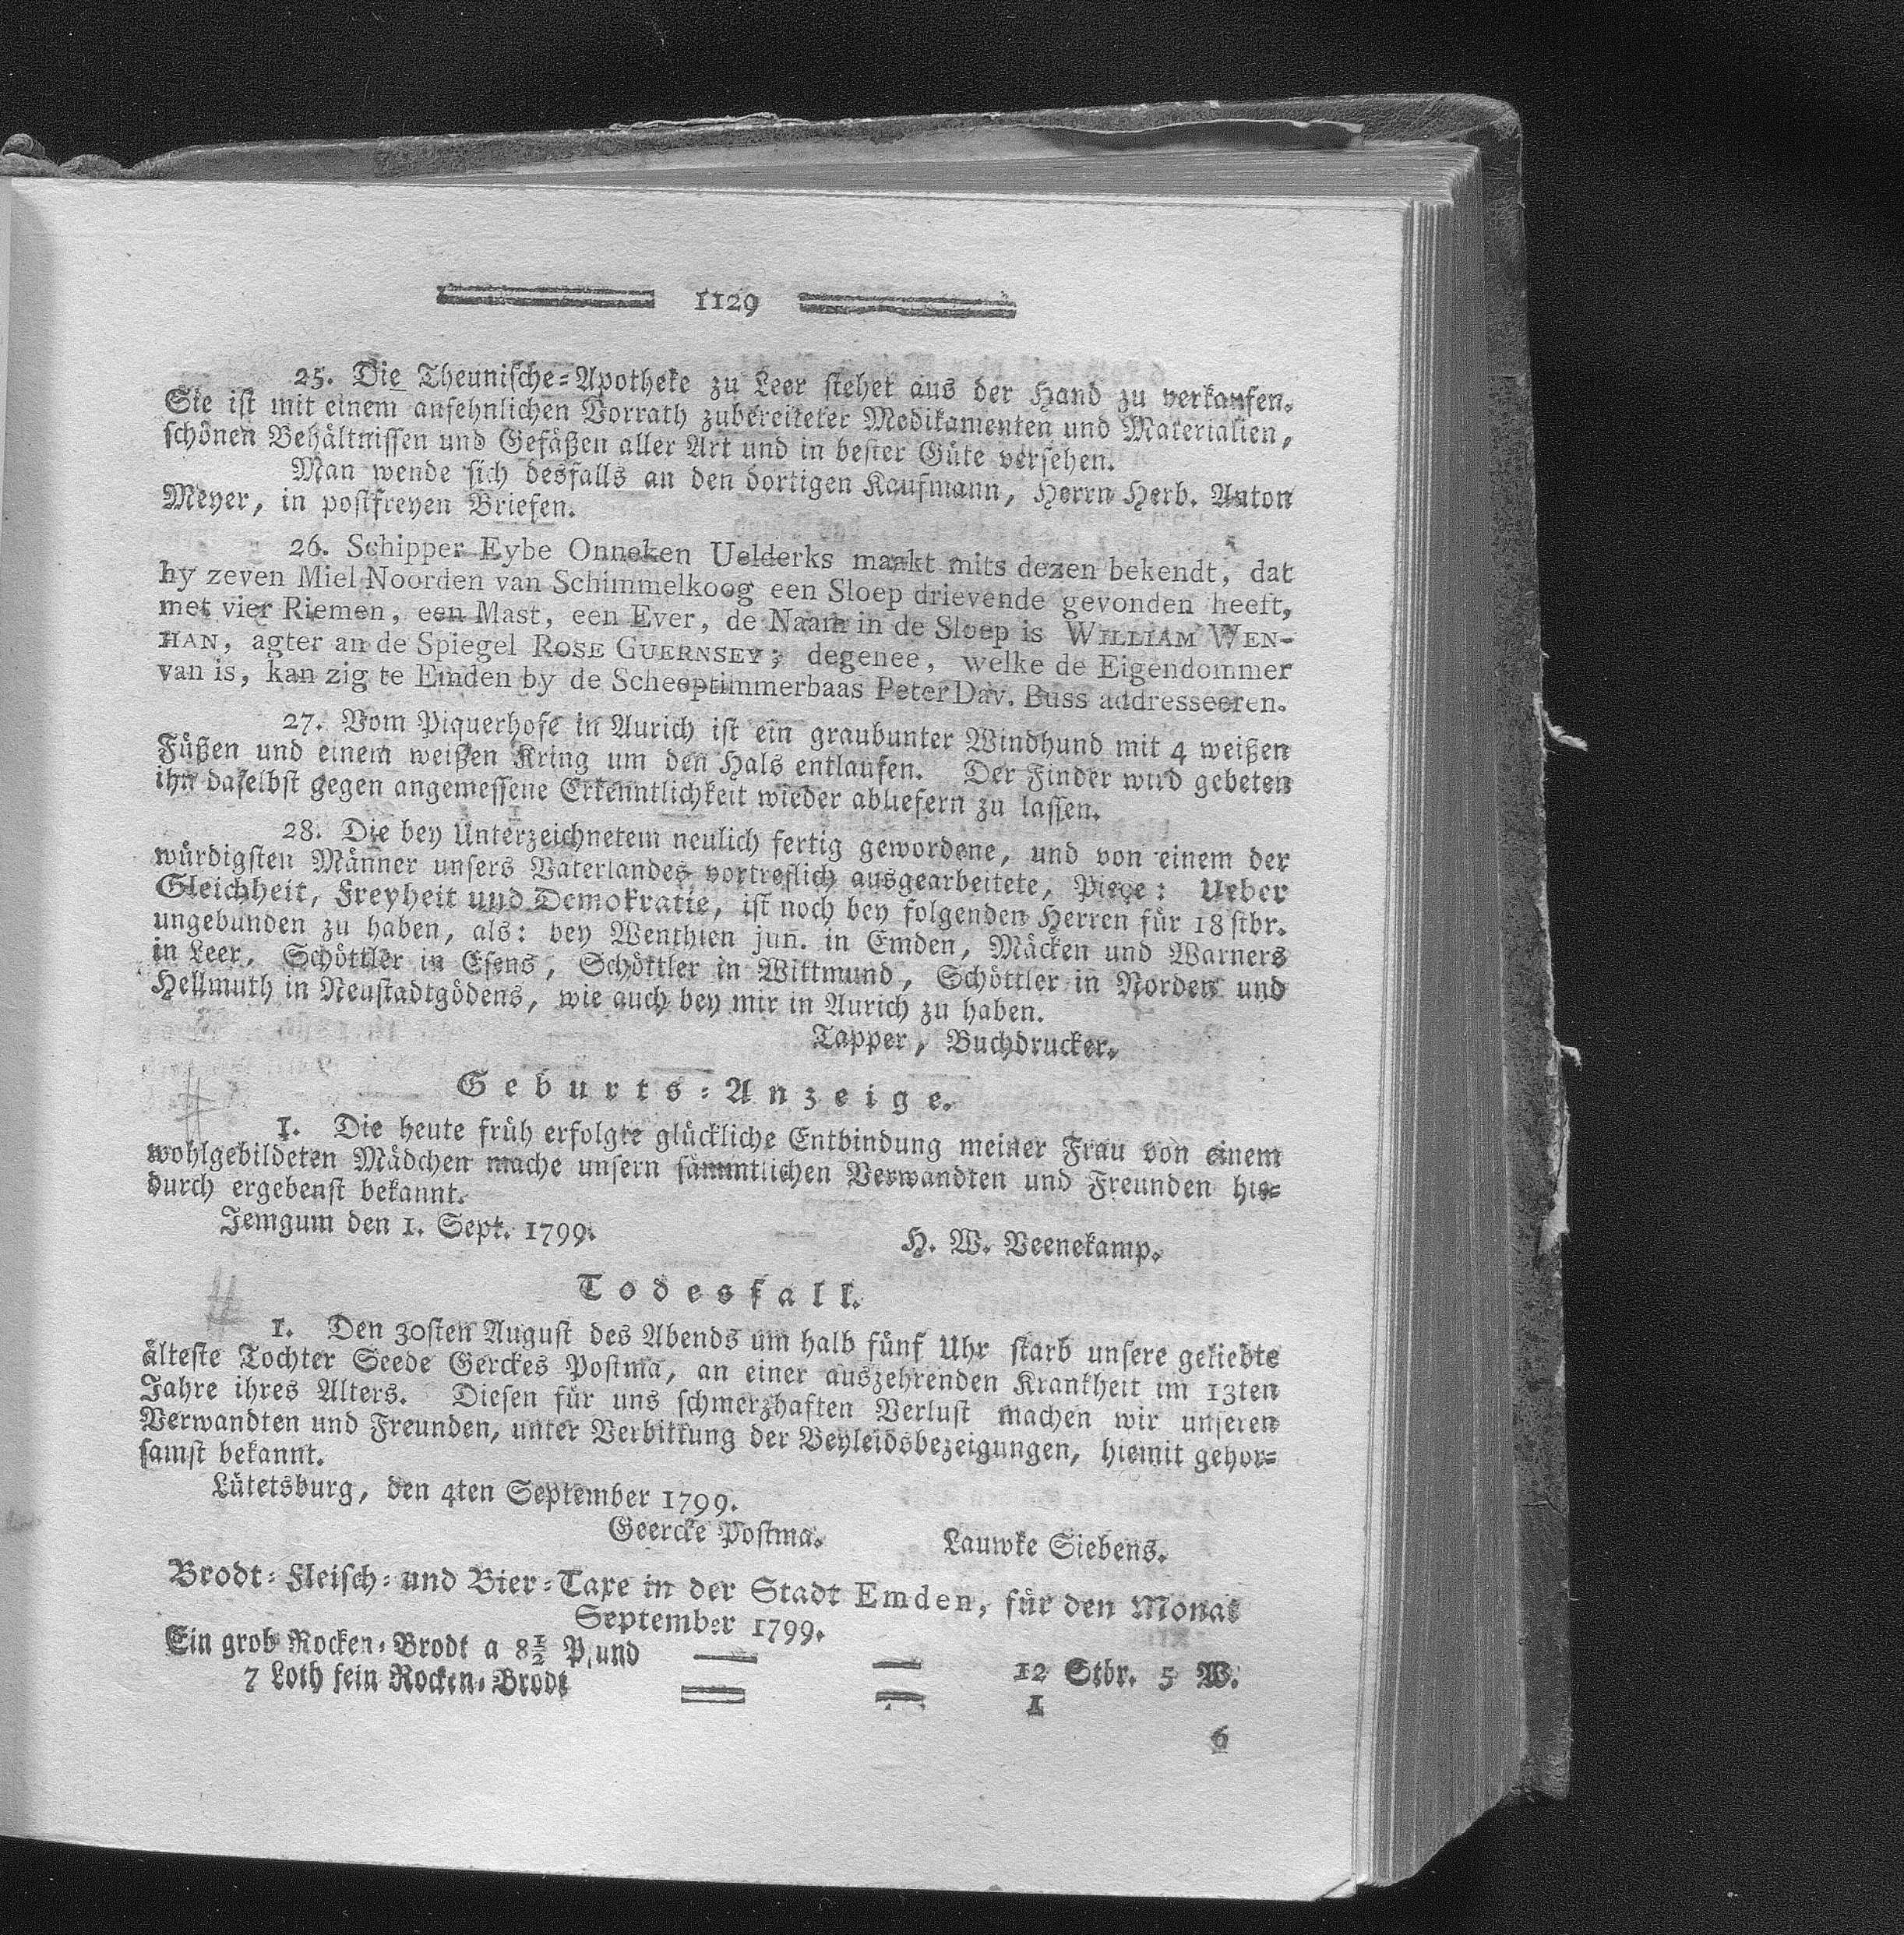 1129
25. Die Theunische-Apotheke zu Leer stehet aus der Hand zu verkaufen.
Sie ist mit einem ansehnlichen Vorrath zubereiteter Medikamenten und Materialien,
schönen Behältnissen und Gefäßen aller Art und in bester Güte versehen.
Man wende sich desfalls an den dortigen Kaufmann, Herrn Herb. Anton
Meyer, in postfreyen Briefen.
26. Schipper Eybe Onneken Uelderks maakt mits dezen bekendt, dat
hy zeven Miel Noorden van Schimmelkoog een Sloep drievende gevonden heeft,
met vier Riemen, een Mast, een Ever, de Naam in de Sloep is WILLIAM WEN-
HAN, agter an de Spiegel ROSE GUERNSEY; degenee, welke de Eigendommer
van is, kan zig te Emden by de Scheeptimmerbaas Peter Dav. Buss addresseeren.
27. Vom Piquerhofe in Aurich ist ein graubunter Windhund mit 4 weißen
Füßen und einem weißen Kring um den Hals entlaufen. Der Finder wird gebeten
ihn daselbst gegen angemessene Erkenntlichkeit wieder abliefern zu lassen.
28. Die bey Unterzeichnetem neulich fertig gewordene, und von einem der
würdigsten Männer unsers Vaterlandes vortreflich ausgearbeitete, Pieçe: Ueber
Gleichheit, Freyheit und Demokratie, ist noch bey folgenden Herren für 18 stbr.
ungebunden zu haben, als: bey Wenthien jun. in Emden, Mäcken und Warners
in Leer, Schöttler in Esens, Schöttler in Wittmund, Schöttler in Norden und
Hellmuth in Neustadtgödens, wie auch bey mir in Aurich zu haben.
Tapper, Buchdrucker.
Geburts-Anzeige.
1. Die heute früh erfolgte glückliche Entbindung meiner Frau von einem
wohlgebildeten Mädchen mache unsern sämmtlichen Verwandten und Freunden hie-
durch ergebenst bekannt.
Jemgum den 1. Sept. 1799.
H. W. Veenekamp.
Todesfall.
1. Den 30sten August des Abends um halb fünf Uhr starb unsere geliebte
älteste Tochter Seede Gerckes Postma, an einer auszehrenden Krankheit im 13ten
Jahre ihres Alters. Diesen für uns schmerzhaften Verlust machen wir unseren
Verwandten und Freunden, unter Verbittung der Beyleidsbezeigungen, hiemit gehor-
samst bekannt.
Lütetsburg, den 4ten September 1799.
Geercke Postma. Lauwke Siebens.
Brodt- Fleisch- und Bier-Taxe in der Stadt Emden, für den Monat
September 1799.
Ein grob Rocken-Brodt a 8½ P, und — — 12 Stbr. 5 W.
7 Loth fein Rocken-Brodt = = 1
6